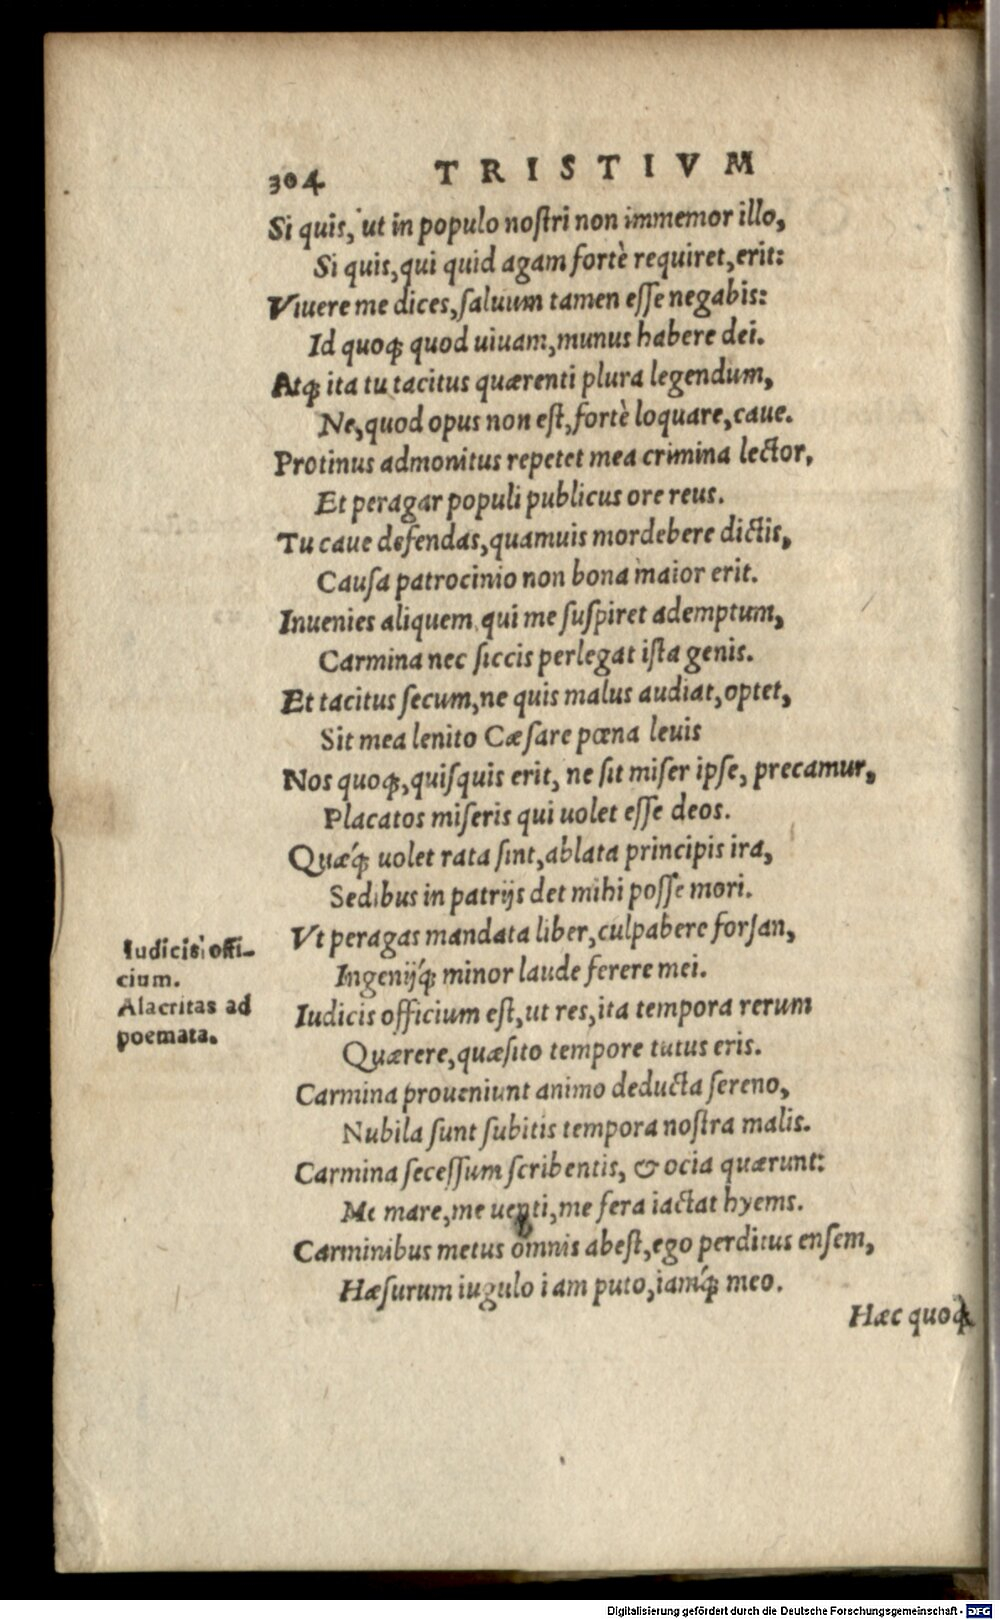 304 TRISTIVM
Si quis, ut in populo noſtri non immemor illo,
Si quis, qui quid agam fortè requiret, erit:
Viuere me dices, ſaluum tamen eſſe negabis:
Id quoq; quod uiuam, munus habere dei.
Atq; ita tu tacitus quærenti plura legendum,
Ne, quod opus non eſt, fortè loquare, caue.
Protinus admonitus repetet mea crimina lector,
Et peragar populi publicus ore reus.
Tu caue defendas, quamuis mordebere dictis,
Cauſa patrocinio non bona maior erit.
Inuenies aliquem qui me ſuſpiret ademptum,
Carmina nec ſiccis perlegat iſta genis.
Et tacitus ſecum, ne quis malus audiat, optet,
Sit mea lenito Cæſare pœna leuis
Nos quoq;, quiſquis erit, ne ſit miſer ipſe, precamur,
Placatos miſeris qui uolet eſſe deos.
Quæq́; uolet rata ſint, ablata principis ira,
Sedibus in patrijs det mihi poſſe mori.
Vt peragas mandata liber, culpabere forſan,
Ingenijq́; minor laude ferere mei.
Iudicis offi-
cium.
Alacritas ad
poemata.
Iudicis officium eſt, ut res, ita tempora rerum
Quærere, quæſito tempore tutus eris.
Carmina proueniunt animo deducta ſereno,
Nubila ſunt ſubitis tempora noſtra malis.
Carmina ſeceſſum ſcribentis, & ocia quærunt:
Me mare, me uenti, me fera iactat hyems.
Carminibus metus omnis abeſt, ego perditus enſem,
Hæſurum iugulo iam puto, iamq́; meo.
Hæc quoq;
Digitalisierung gefördert durch die Deutsche Forschungsgemeinschaft - DFG